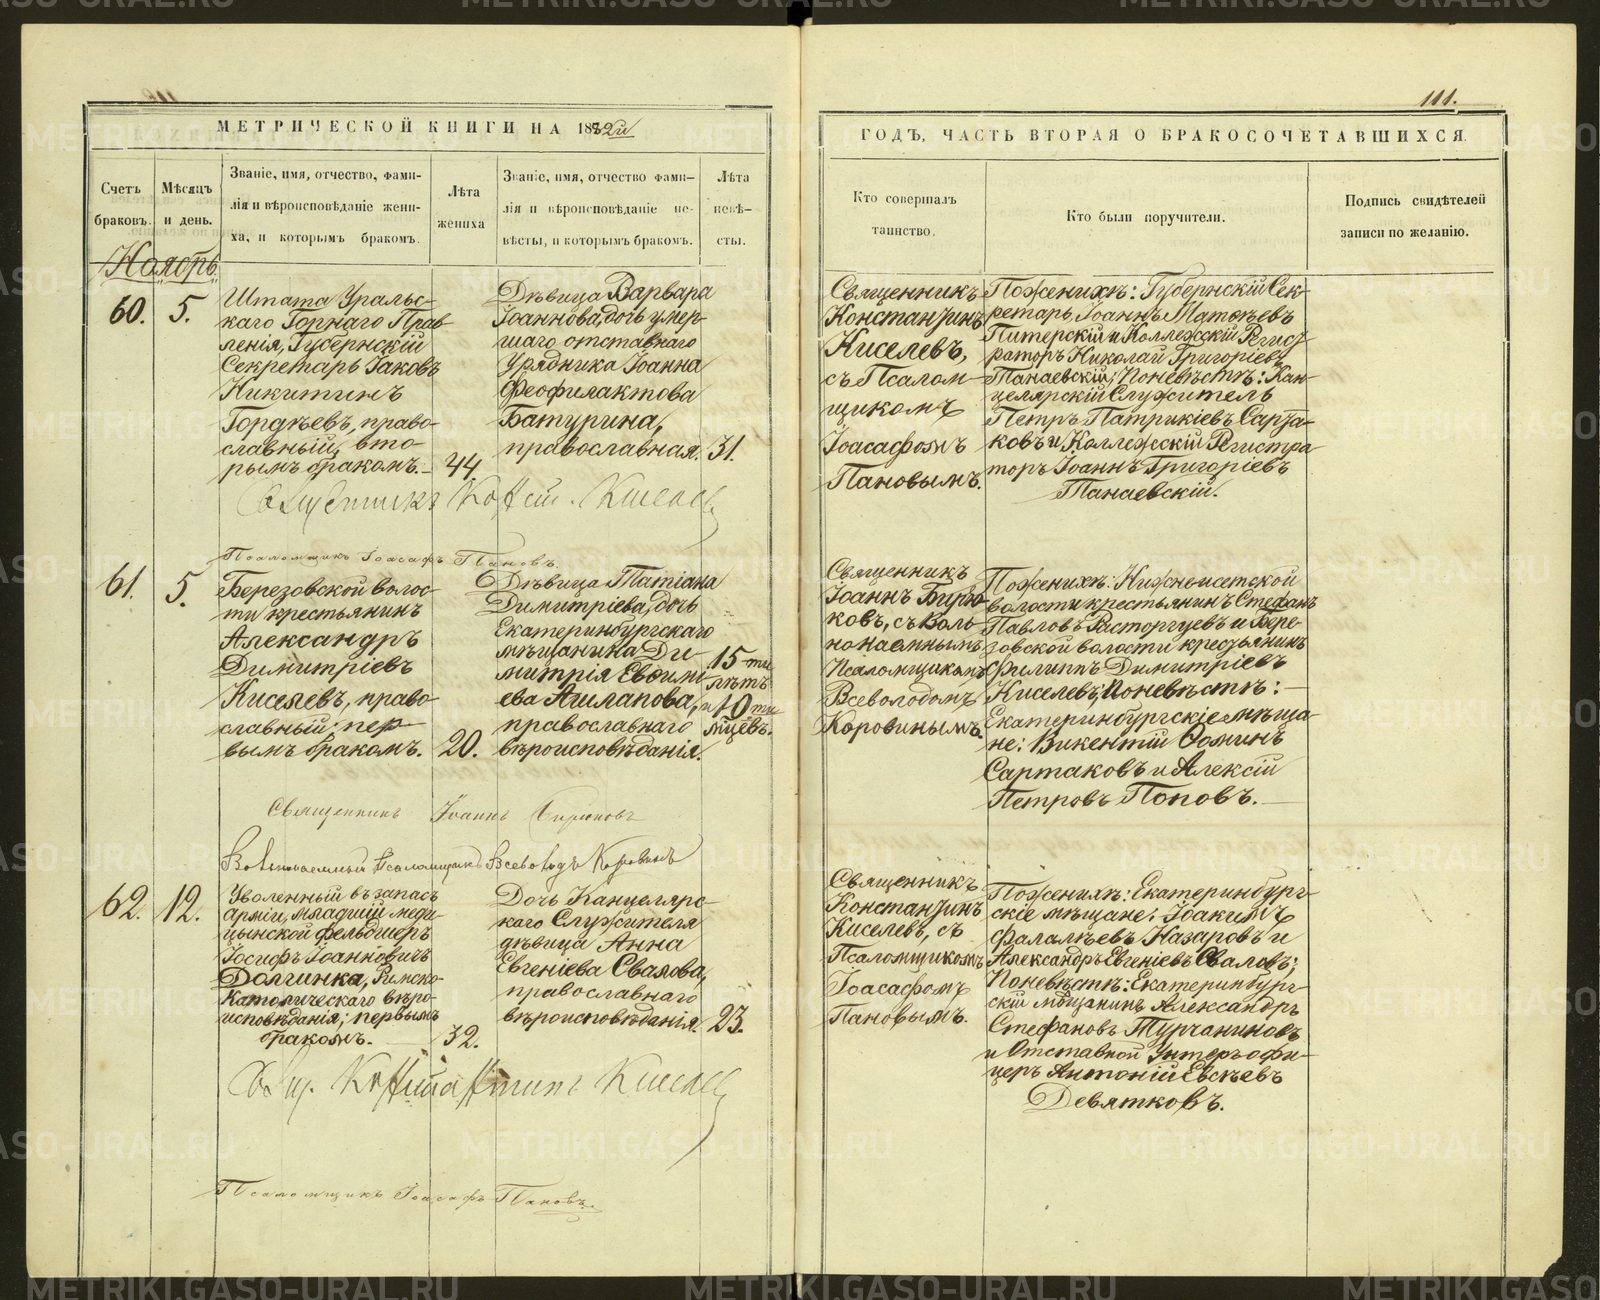 111.
МЕТРИЧЕСКОЙ КНИГИ НА 1882й
ГОДЪ, ЧАСТЬ ВТОРАЯ О БРАКОСОЧЕТАВШИХСЯ.
Счетъ
браковъ.
Мѣсяцъ
и день.
Званіе, имя, отчество, фами-
лія и вѣроисповѣданіе жени-
ха, и которымъ бракомъ.
Лѣта
жениха
Званіе, имя, отчество фами-
лія и вѣроисповѣданіе не-
вѣсты, и которымъ бракомъ.
Лѣта
невѣ-
сты.
Кто совершалъ
таинство.
Кто были поручители.
Подпись свидѣтелей
записи по желанію.
Ноябрь
60.
5.
Штата Ураль-
скаго Горнаго Прав-
ленія, Губернскій
Секретарь Іаковъ
Никитинъ
Гордѣевъ, право-
славный, вто-
рымъ бракомъ.
44
Дѣвица Варвара
Іоаннова, дочь умер-
шаго отставнаго
Урядника Іоанна
Феофилактова
Батурина,
православная.
31.
Священникъ
Константинъ
Киселевъ,
съ Псалом-
щикомъ
Іоасафомъ
Пановымъ.
По женихѣ: Губернскій Сек-
ретарь Іоаннъ Матѳѣевъ
Питерскій и Коллежскій Регист-
раторъ Николай Григоріевъ
Танаевскій; По невѣстѣ: Кан-
целярскій Служитель
Петръ Патрикіевъ Сарта-
ковъ и Коллежскій Регистра-
торъ Іоаннъ Григоріевъ
Танаевскій.
Священникъ Конст. Киселевъ
Псаломщикъ Іоасафъ Пановъ.
61.
5.
Березовской волос-
ти крестьянинъ
Александръ
Димитріевъ
Киселевъ, право-
славный; пер-
вымъ бракомъ.
20.
Дѣвица Татіана
Димитріева, дочь
Екатеринбургскаго
мѣщанина Ди-
митрія Евѳимі-
ева Ашлапова,
православнаго
вѣроисповѣданія.
15-ти
лѣтъ
и 10ти
мцевъ.
Священникъ
Іоаннъ Бирю-
ковъ, съ Воль-
нонаемнымъ
Псаломщикомъ
Всеволодомъ
Коровинымъ.
По женихѣ: Нижнеисетской
волости крестьянинъ Стефанъ
Павловъ Расторгуевъ и Бере-
зовской волости крестьянинъ
Филиппъ Димитріевъ
Киселевъ; По невѣстѣ:
Екатеринбургскіе мѣща-
не: Викентій Ѳоминъ
Сартаковъ и Алексій
Петровъ Поповъ.
Священникъ Іоаннъ Бирюковъ
Вольнонаемный Псаломщикъ Всеволодъ Коровинъ
62.
12.
Уволенный въ запасъ
арміи, младшій меди-
цынской фельдшеръ
Іосифъ Іоанновичъ
Долгинка, Римско-
Католическаго вѣро-
исповѣданія; первымъ
бракомъ.
32.
Дочь Канцеляр-
скаго Служителя
дѣвица Анна
Евгеніева Свалова,
православнаго
вѣроисповѣданія.
23.
Священникъ
Константинъ
Киселевъ, съ
Псаломщикомъ
Іоасафомъ
Пановымъ.
По женихѣ: Екатеринбург-
скіе мѣщане: Іоакимъ
Фалалѣевъ Назаровъ и
Александръ Евгеніевъ Сваловъ;
По невѣстѣ: Екатеринбург-
скій мѣщанинъ Александръ
Стефановъ Турчаниновъ
и Отставной Унтеръ-офи-
церъ Антоній Евсѣевъ
Девятковъ.
Свящ. Константинъ Киселевъ
Псаломщикъ Іоасафъ Пановъ.
METRIKI.GASO-URAL.RU